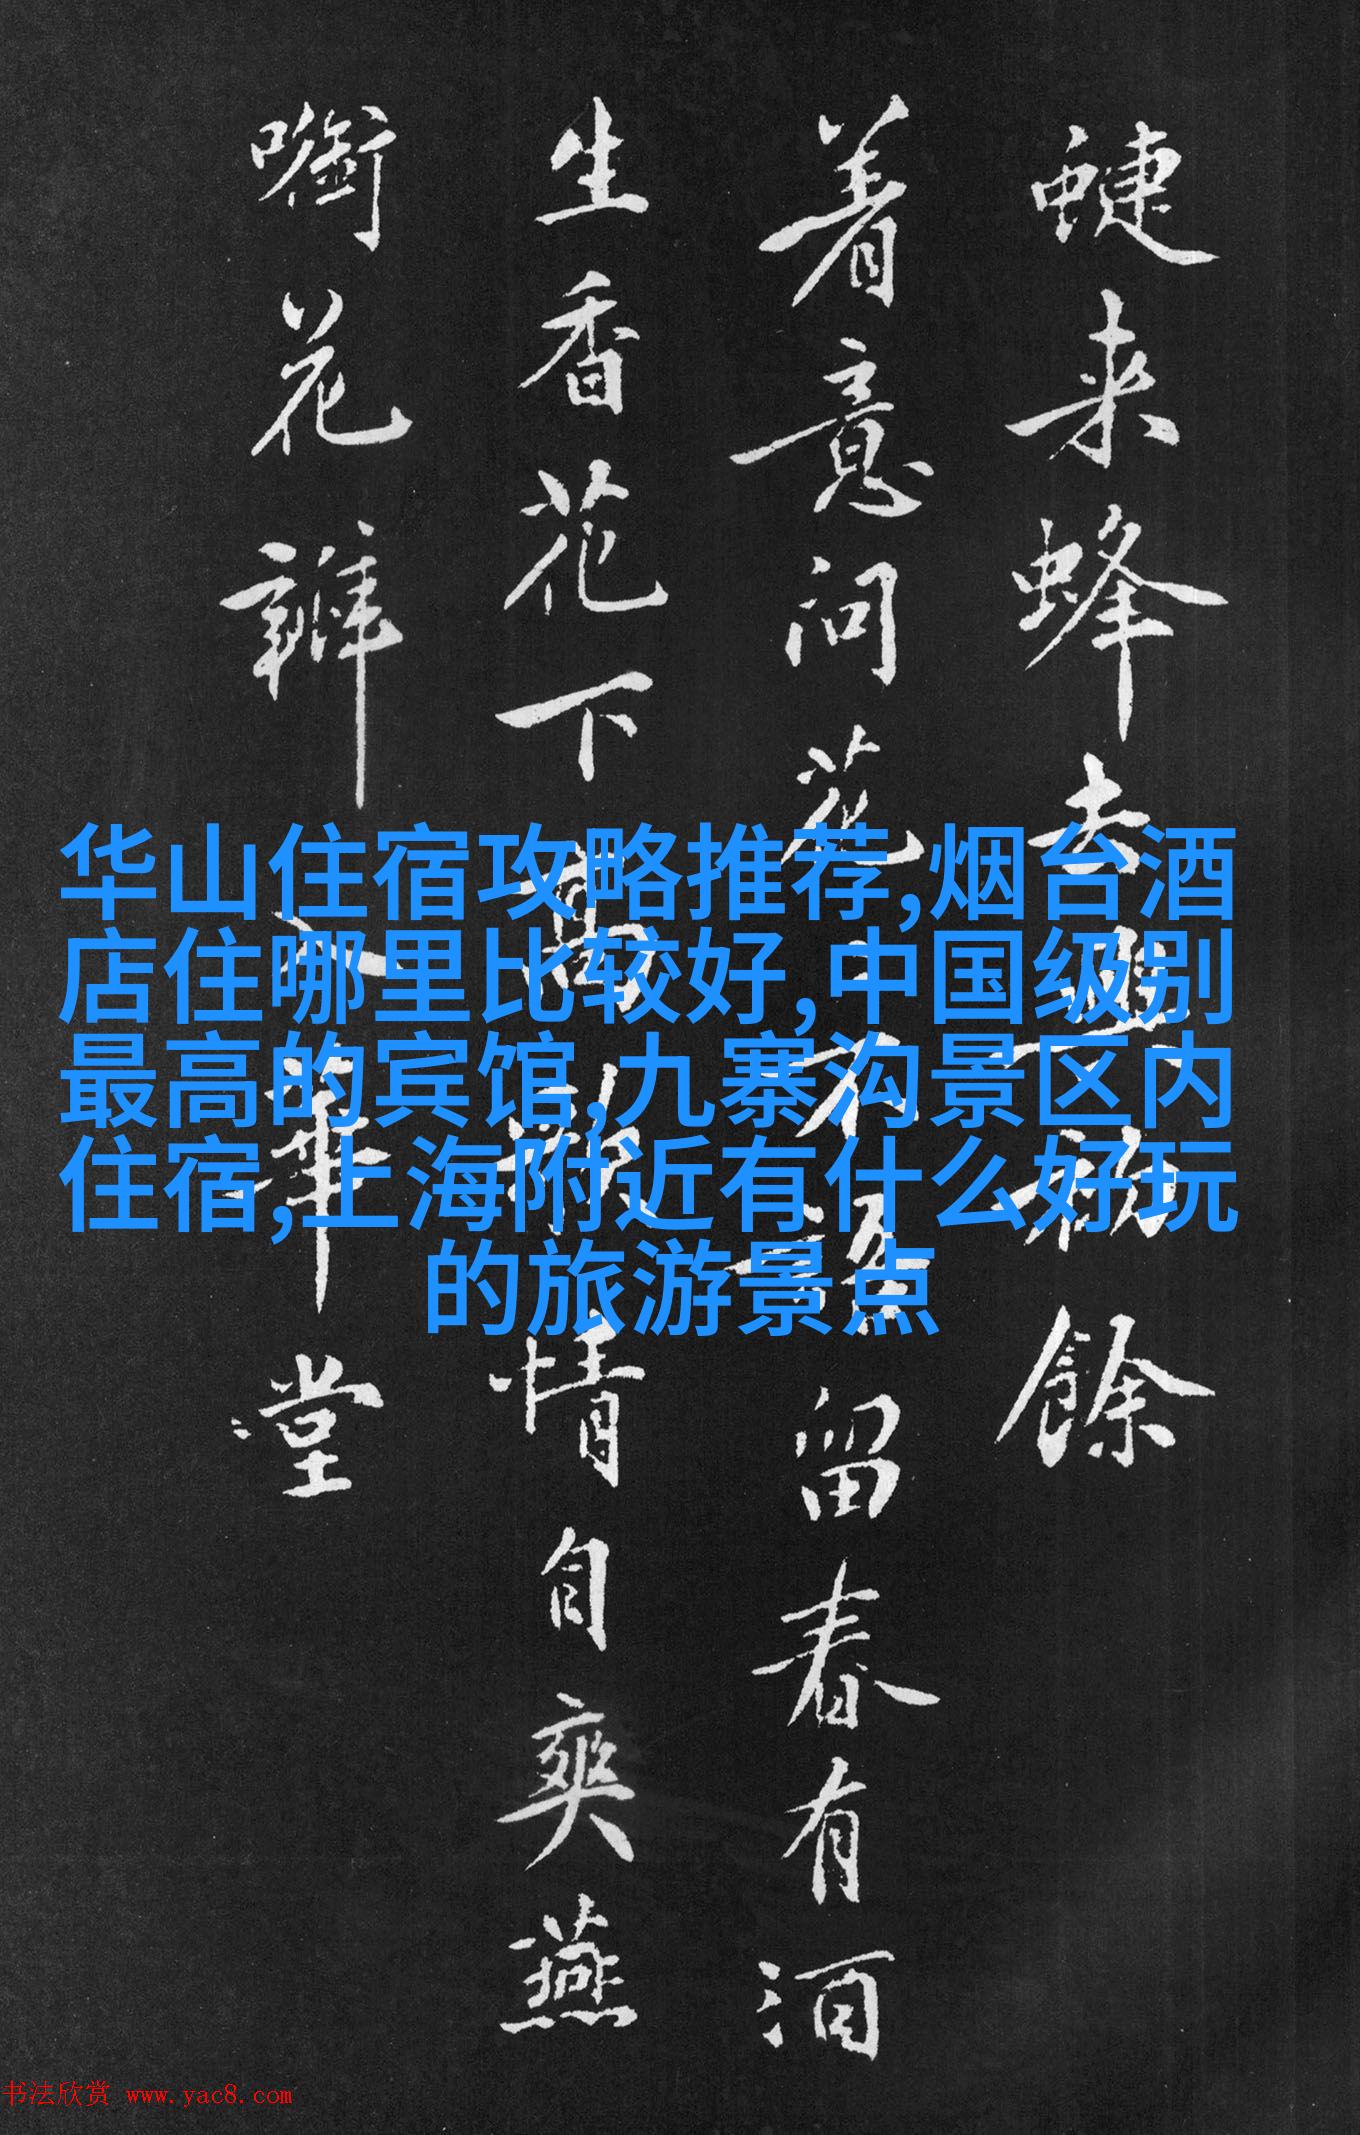 蜨来蜂去餘
着意问花不語留春有酒
生香花下高歌情自爽燕
花瓣入華堂
华山住宿攻略推荐,烟台酒
店住哪里比较好,中国级别
最高的宾馆,九寨沟景区内
住宿,上海附近有什么好玩
的旅游景点
书法欣赏 www.yac8.com